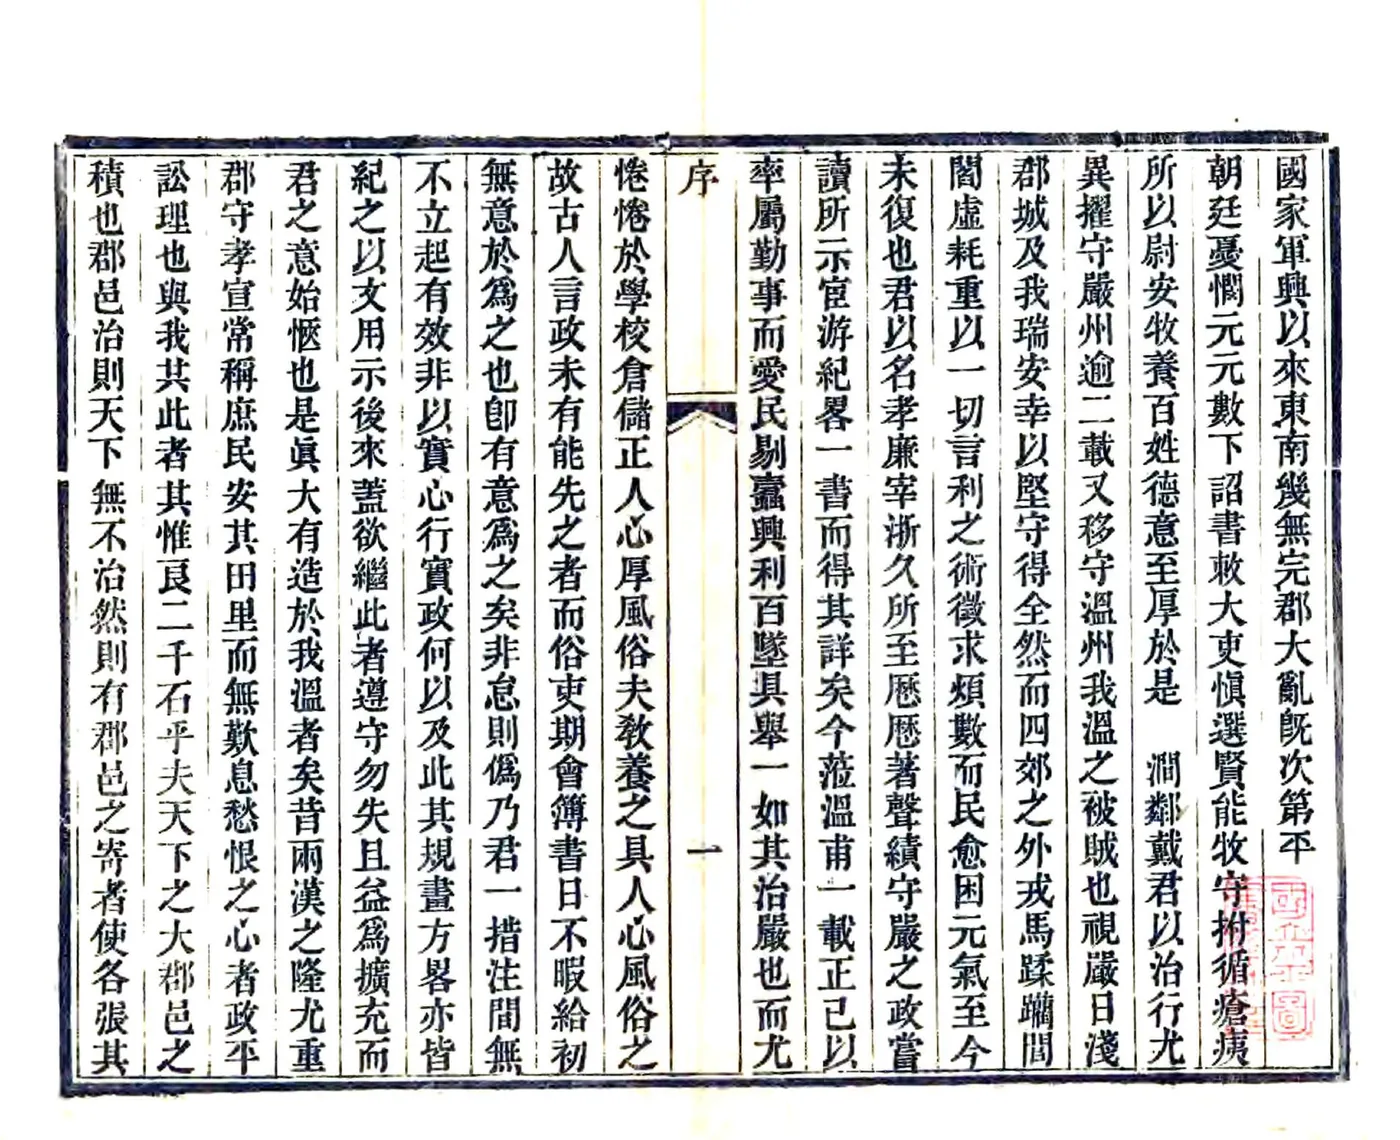 國家軍興以來東南幾無完郡大亂旣次第平
朝廷憂憫元元數下詔書敕大吏愼選賢能牧守拊循瘡痍
所以尉安牧養百姓德意至厚於是　澗鄰戴君以治行尤
異擢守嚴州逾二載又移守溫州我溫之被賊也視嚴日淺
郡城及我瑞安幸以堅守得全然而四郊之外戎馬蹂躪閭
閻虛耗重以一切言利之術徵求煩數而民愈困元氣至今
未復也君以名孝廉宰浙久所至歷歷著聲績守嚴之政嘗
讀所示宦游紀畧一書而得其詳矣今蒞溫甫一載正己以
率屬勤事而愛民剔蠹興利百墜具舉一如其治嚴也而尤
序
一
惓惓於學校倉儲正人心厚風俗夫敎養之具人心風俗之
故古人言政未有能先之者而俗吏期會簿書日不暇給初
無意於爲之也卽有意爲之矣非怠則僞乃君一措注間無
不立起有效非以實心行實政何以及此其規畫方畧亦皆
紀之以文用示後來蓋欲繼此者遵守勿失且益爲擴充而
君之意始愜也是眞大有造於我溫者矣昔兩漢之隆尤重
郡守孝宣常稱庶民安其田里而無歎息愁恨之心者政平
訟理也與我共此者其惟良二千石乎夫天下之大郡邑之
積也郡邑治則天下無不治然則有郡邑之寄者使各張其